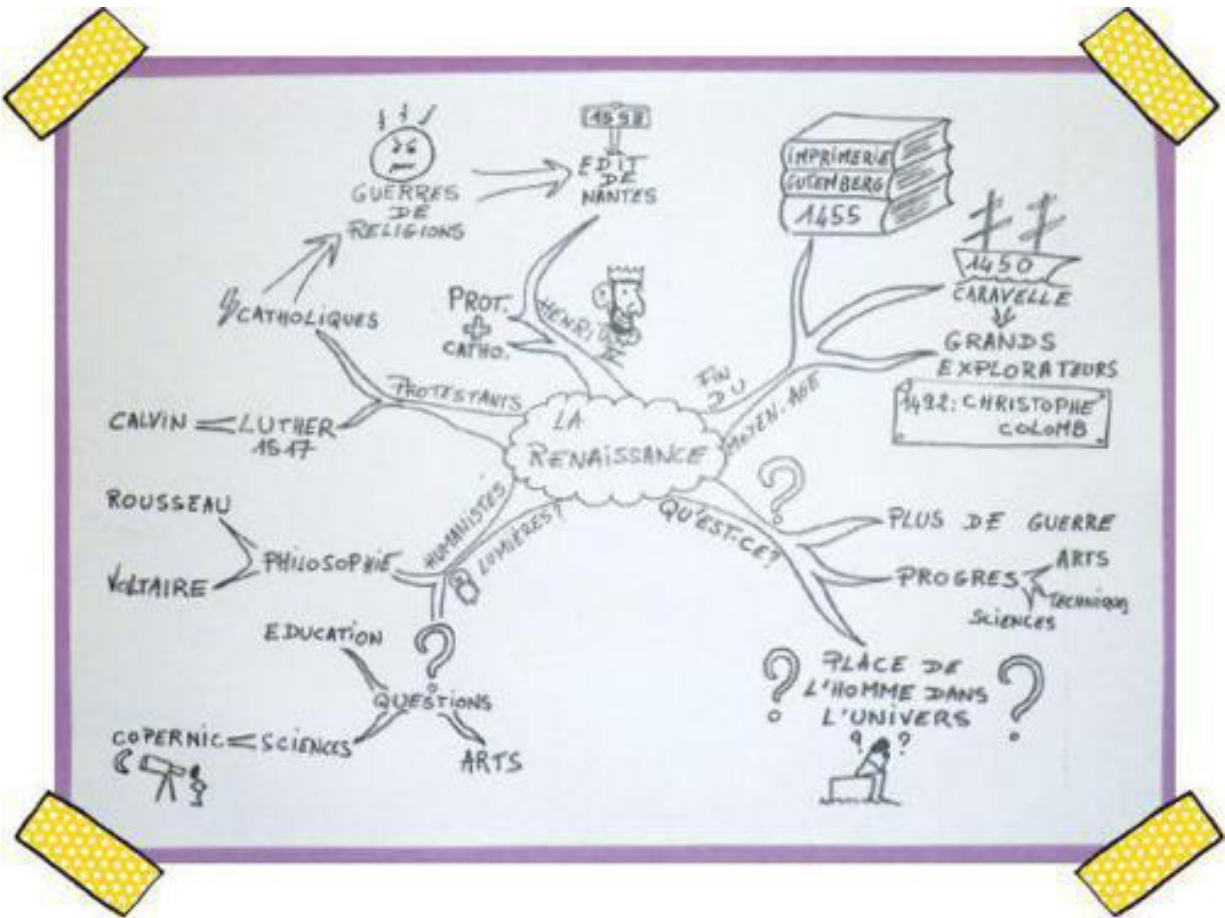 LA
RENAISSANCE
FIN
DU
MOYEN-AGE
IMPRIMERIE
GUTEMBERG
1455
1450
CARAVELLE
GRANDS
EXPLORATEURS
1492: CHRISTOPHE
COLOMB
QU'EST-CE?
?
PLUS DE GUERRE
PROGRES
ARTS
TECHNIQUES
SCIENCES
? PLACE DE ?
L'HOMME DANS
L'UNIVERS
? ?
HUMANISTES
LUMIÈRES?
PHILOSOPHIE
ROUSSEAU
VOLTAIRE
?
QUESTIONS
EDUCATION
COPERNIC
SCIENCES
ARTS
PROTESTANTS
CALVIN
LUTHER
1517
CATHOLIQUES
GUERRES
DE
RELIGIONS
HENRI
PROT.
+
CATHO.
1598
EDIT
DE
NANTES